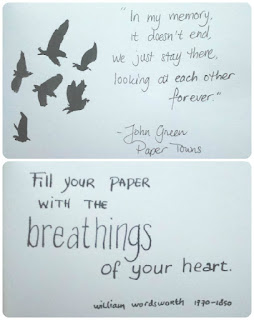 "In my memory,
it doesn't end,
we just stay there,
looking at each other
forever."
-John Green
Paper Towns
Fill your PAPER
WITH THE
breathings
of your heart.
william wordsworth 1770-1850